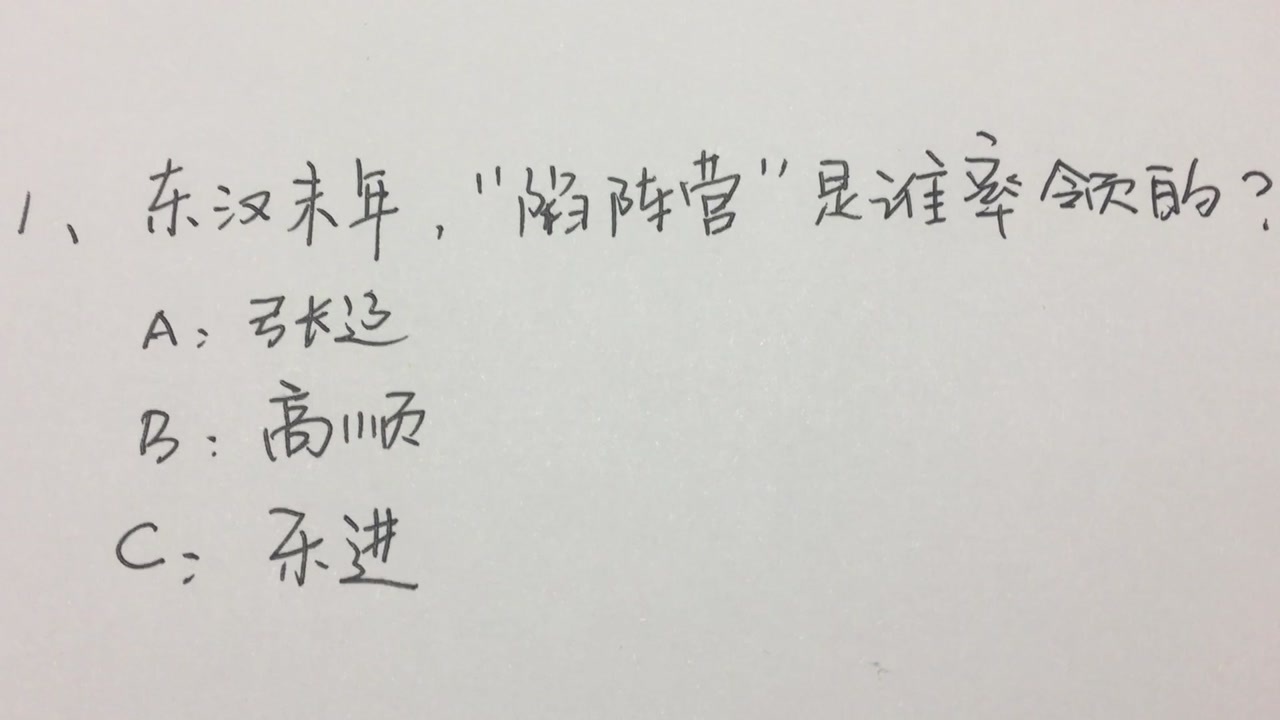 1、东汉末年，“陷阵营”是谁率领的？
A：张辽
B：高顺
C：乐进